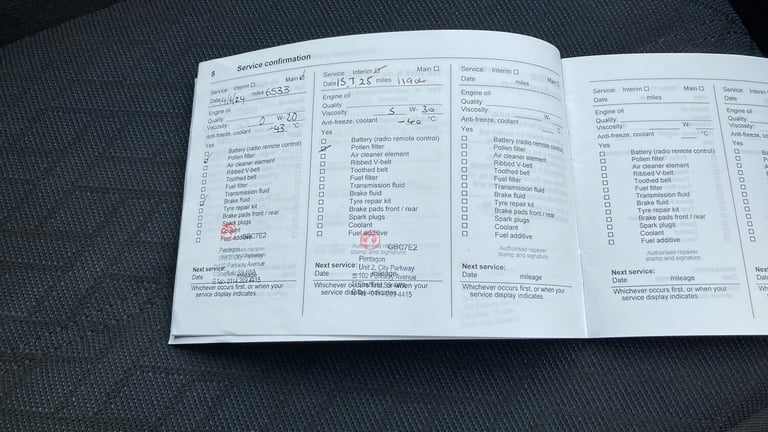 8 Service confirmation
Service: Interim Main
Date 4/6/24 miles 6533
Engine oil
Quality:
Viscosity: 0 W- 20
Anti-freeze, coolant -43 °C
Yes
Battery (radio remote control)
Pollen filter
Air cleaner element
Ribbed V-belt
Toothed belt
Fuel filter
Transmission fluid
Brake fluid
Tyre repair kit
Brake pads front / rear
Spark plugs
Coolant
Fuel additive GBC7E2
Pentagon
Unit 2, City Parkway
102 Parkway Avenue
Next service:
Date mileage
Whichever occurs first, or when your
service display indicates.
Service: Interim Main
Date miles
Engine oil
Quality:
Viscosity: 5 W- 30
Anti-freeze, coolant -40 °C
Yes
Battery (radio remote control)
Pollen filter
Air cleaner element
Ribbed V-belt
Toothed belt
Fuel filter
Transmission fluid
Brake fluid
Tyre repair kit
Brake pads front / rear
Spark plugs
Coolant
Fuel additive
GBC7E2
stamp and signature
Pentagon
Next service: Unit 2, City Parkway
Date mileage 102 Parkway Avenue
Whichever occurs first, or when your
service display indicates.
Service: Interim Main
Date miles
Engine oil
Quality:
Viscosity: W-
Anti-freeze, coolant °C
Yes
Battery (radio remote control)
Pollen filter
Air cleaner element
Ribbed V-belt
Toothed belt
Fuel filter
Transmission fluid
Brake fluid
Tyre repair kit
Brake pads front / rear
Spark plugs
Coolant
Fuel additive
Authorised repairer
stamp and signature
Next service:
Date mileage
Whichever occurs first, or when your
service display indicates.
Service: Interim Main
Date miles
Engine oil
Quality:
Viscosity: W-
Anti-freeze, coolant °C
Yes
Battery (radio remote control)
Pollen filter
Air cleaner element
Ribbed V-belt
Toothed belt
Fuel filter
Transmission fluid
Brake fluid
Tyre repair kit
Brake pads front / rear
Spark plugs
Coolant
Fuel additive
Authorised repairer
stamp and signature
Next service:
Date mileage
Whichever occurs first, or when your
service display indicates.
Service: Interim
Date
Engine oil
Quality:
Viscosity:
Anti-freeze,
Yes
Next
Date